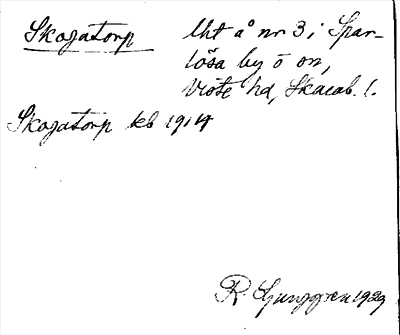 Skogatorp
Lht å nr 3 i Spar-
lösa by o sn,
Viste hd, Skarab. l.
Skogatorp kb 1914
R. Ljunggren 1929